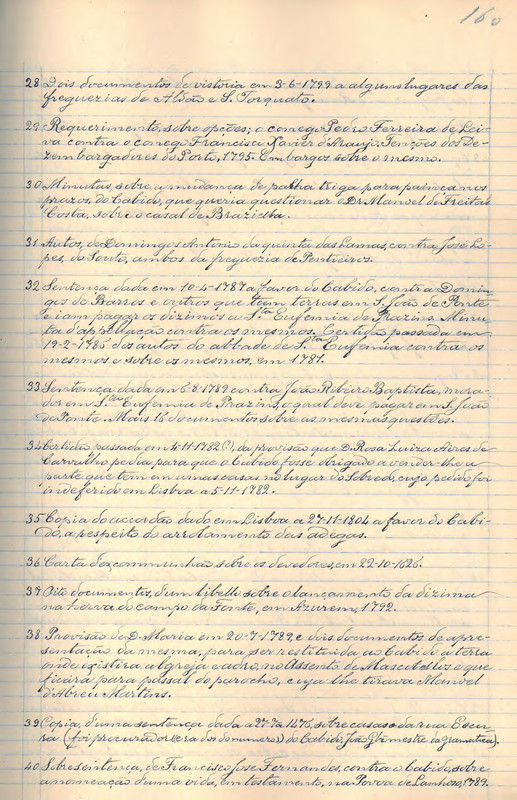 160
28 Dois documentos de vistoria em 3-6-1799 a alguns lugares das
freguezias de Aldão e S. Torquato.
29 Requerimento, sobre opções; o conego Pedro Ferreira de Lei-
va contra o conego Francisco Xavier d'Araujo. Tenções dos De-
zembargadores do Porto, 1795. Embargos sobre o mesmo.
30 Minutas, sobre a mudança de palha triga para painça nos
prazos, do Cabido, que queria questionar o Dr. Manoel de Freitas
Costa, sobre o casal de Brazielha.
31 Autos, de Domingos Antonio da quinta das Lamas, contra José Lo-
pes, do Souto, ambos da freguezia de Pentieiros.
32 Sentença dada em 10-4-1787 a favor do Cabido, contra Domin-
gos de Barros e outros que teem terras em S. João de Ponte
e iam pagar os dizimos a S.ta Eufemia de Prazins. Minu-
ta d'appellação contra os mesmos. Certidão passada em
19-2-1785 dos autos do abbade de S.ta Eufemia contra os
mesmos e sobre os mesmos, em 1781.
33 Sentença dada em 8-8-1789 contra João Ribeiro Baptista, mora-
dor em S.ta Eufemia de Prazins, o qual deve pagar em S. João
de Ponte. Mais 15 documentos sobre as mesmas questões.
34 Certidão passada em 4-11-1782(?), da provisão que D. Rosa Luiza Aires de
Carvalho, pedia para que o Cabido fosse obrigado a vender-lhe a
parte que tem em umas casas no lugar do Sobredo, cujo pedido foi
indeferido em Lisboa a 5-11-1782.
35 Copia do accordão dado em Lisboa a 27-11-1804 a favor do Cabi-
do, a respeito do arrolamento das adegas.
36 Carta d'excommunhão sobre os devedores, em 22-10-1626.
37 Oito documentos, d'um libello sobre o lançamento da dizima
na herva do campo da Fonte, em Azurem, 1792.
38 Provisão de D. Maria em 20-7-1789, e dois documentos de apre-
sentação da mesma, para ser restituida ao Cabido a terra
onde existira a Igreja e adro, no Assento de Mascotellos e que
ficára para passal do parocho, cuja lhe tirava Manoel
d'Abreu Martins.
39 Copia, d'uma sentença dada a 1275, sobre casas da rua Escu-
ra (foi procurador do Cabido, João mestre da gramatica).
40 Sobre sentença, de Francisco José Fernandes, contra o Cabido, sobre
a nomeação d'uma vida, em testamento, na Povoa de Lanhoso, 1789.